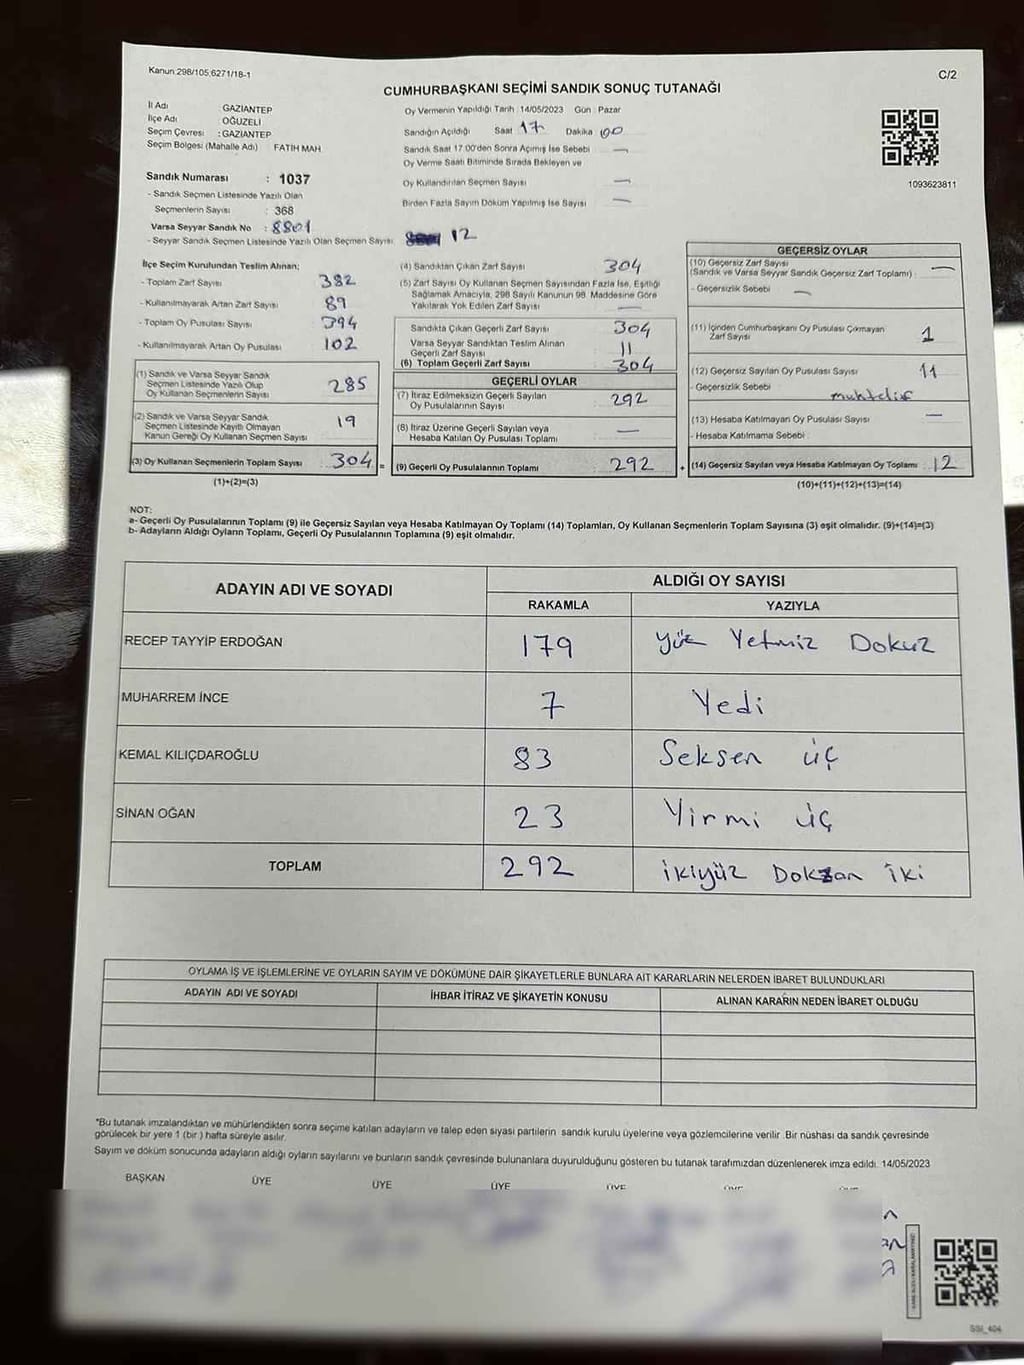 Kanun:298/105;6271/18-1
C/2
CUMHURBAŞKANI SEÇİMİ SANDIK SONUÇ TUTANAĞI
İl Adı : GAZİANTEP
İlçe Adı : OĞUZELİ
Seçim Çevresi : GAZİANTEP
Seçim Bölgesi (Mahalle Adı) FATİH MAH
Oy Vermenin Yapıldığı Tarih :14/05/2023 Gün : Pazar
Sandığın Açıldığı Saat 17 Dakika 00
Sandık Saat 17:00'den Sonra Açımış İse Sebebi —
Oy Verme Saati Bitiminde Sırada Bekleyen ve
Oy Kullandırılan Seçmen Sayısı —
Birden Fazla Sayım Döküm Yapılmış İse Sayısı —
1093623811
Sandık Numarası : 1037
- Sandık Seçmen Listesinde Yazılı Olan
Seçmenlerin Sayısı : 368
Varsa Seyyar Sandık No : 8801
- Seyyar Sandık Seçmen Listesinde Yazılı Olan Seçmen Sayısı 12
İlçe Seçim Kurulundan Teslim Alınan;
- Toplam Zarf Sayısı 382
- Kullanılmayarak Artan Zarf Sayısı 89
- Toplam Oy Pusulası Sayısı 394
- Kullanılmayarak Artan Oy Pusulası 102
(1) Sandık ve Varsa Seyyar Sandık
Seçmen Listesinde Yazılı Olup
Oy Kullanan Seçmenlerin Sayısı 285
(2) Sandık ve Varsa Seyyar Sandık
Seçmen Listesinde Kayıtlı Olmayan
Kanun Gereği Oy Kullanan Seçmen Sayısı 19
(3) Oy Kullanan Seçmenlerin Toplam Sayısı 304 =
(1)+(2)=(3)
(4) Sandıktan Çıkan Zarf Sayısı 304
(5) Zarf Sayısı Oy Kullanan Seçmen Sayısından Fazla İse, Eşitliği
Sağlamak Amacıyla, 298 Sayılı Kanunun 98. Maddesine Göre
Yakılarak Yok Edilen Zarf Sayısı —
Sandıkta Çıkan Geçerli Zarf Sayısı 304
Varsa Seyyar Sandıktan Teslim Alınan
Geçerli Zarf Sayısı 11
(6) Toplam Geçerli Zarf Sayısı 304
GEÇERLİ OYLAR
(7) İtiraz Edilmeksizin Geçerli Sayılan
Oy Pusulalarının Sayısı 292
(8) İtiraz Üzerine Geçerli Sayılan veya
Hesaba Katılan Oy Pusulası Toplamı —
(9) Geçerli Oy Pusulalarının Toplamı 292 +
GEÇERSİZ OYLAR
(10) Geçersiz Zarf Sayısı —
(Sandık ve Varsa Seyyar Sandık Geçersiz Zarf Toplamı)
- Geçersizlik Sebebi —
(11) İçinden Cumhurbaşkanı Oy Pusulası Çıkmayan
Zarf Sayısı 1
(12) Geçersiz Sayılan Oy Pusulası Sayısı 11
- Geçersizlik Sebebi muhtelif
(13) Hesaba Katılmayan Oy Pusulası Sayısı —
- Hesaba Katılmama Sebebi
(14) Geçersiz Sayılan veya Hesaba Katılmayan Oy Toplamı 12
(10)+(11)+(12)+(13)=(14)
NOT:
a- Geçerli Oy Pusulalarının Toplamı (9) ile Geçersiz Sayılan veya Hesaba Katılmayan Oy Toplamı (14) Toplamları, Oy Kullanan Seçmenlerin Toplam Sayısına (3) eşit olmalıdır. (9)+(14)=(3)
b- Adayların Aldığı Oyların Toplamı, Geçerli Oy Pusulalarının Toplamına (9) eşit olmalıdır.
ADAYIN ADI VE SOYADI
ALDIĞI OY SAYISI
RAKAMLA YAZIYLA
RECEP TAYYİP ERDOĞAN 179 Yüz Yetmiz Dokuz
MUHARREM İNCE 7 Yedi
KEMAL KILIÇDAROĞLU 83 Seksen üç
SİNAN OĞAN 23 Yirmi üç
TOPLAM 292 ikiyüz Doksan iki
OYLAMA İŞ VE İŞLEMLERİNE VE OYLARIN SAYIM VE DÖKÜMÜNE DAİR ŞİKAYETLERLE BUNLARA AİT KARARLARIN NELERDEN İBARET BULUNDUKLARI
ADAYIN ADI VE SOYADI İHBAR İTİRAZ VE ŞİKAYETİN KONUSU ALINAN KARARIN NEDEN İBARET OLDUĞU
*Bu tutanak imzalandıktan ve mühürlendikten sonra seçime katılan adayların ve talep eden siyasi partilerin sandık kurulu üyelerine veya gözlemcilerine verilir. Bir nüshası da sandık çevresinde
görülecek bir yere 1 (bir ) hafta süreyle asılır.
Sayım ve döküm sonucunda adayların aldığı oyların sayılarını ve bunların sandık çevresinde bulunanlara duyurulduğunu gösteren bu tutanak tarafımızdan düzenlenerek imza edildi. 14/05/2023
BAŞKAN ÜYE ÜYE ÜYE
SSI_404